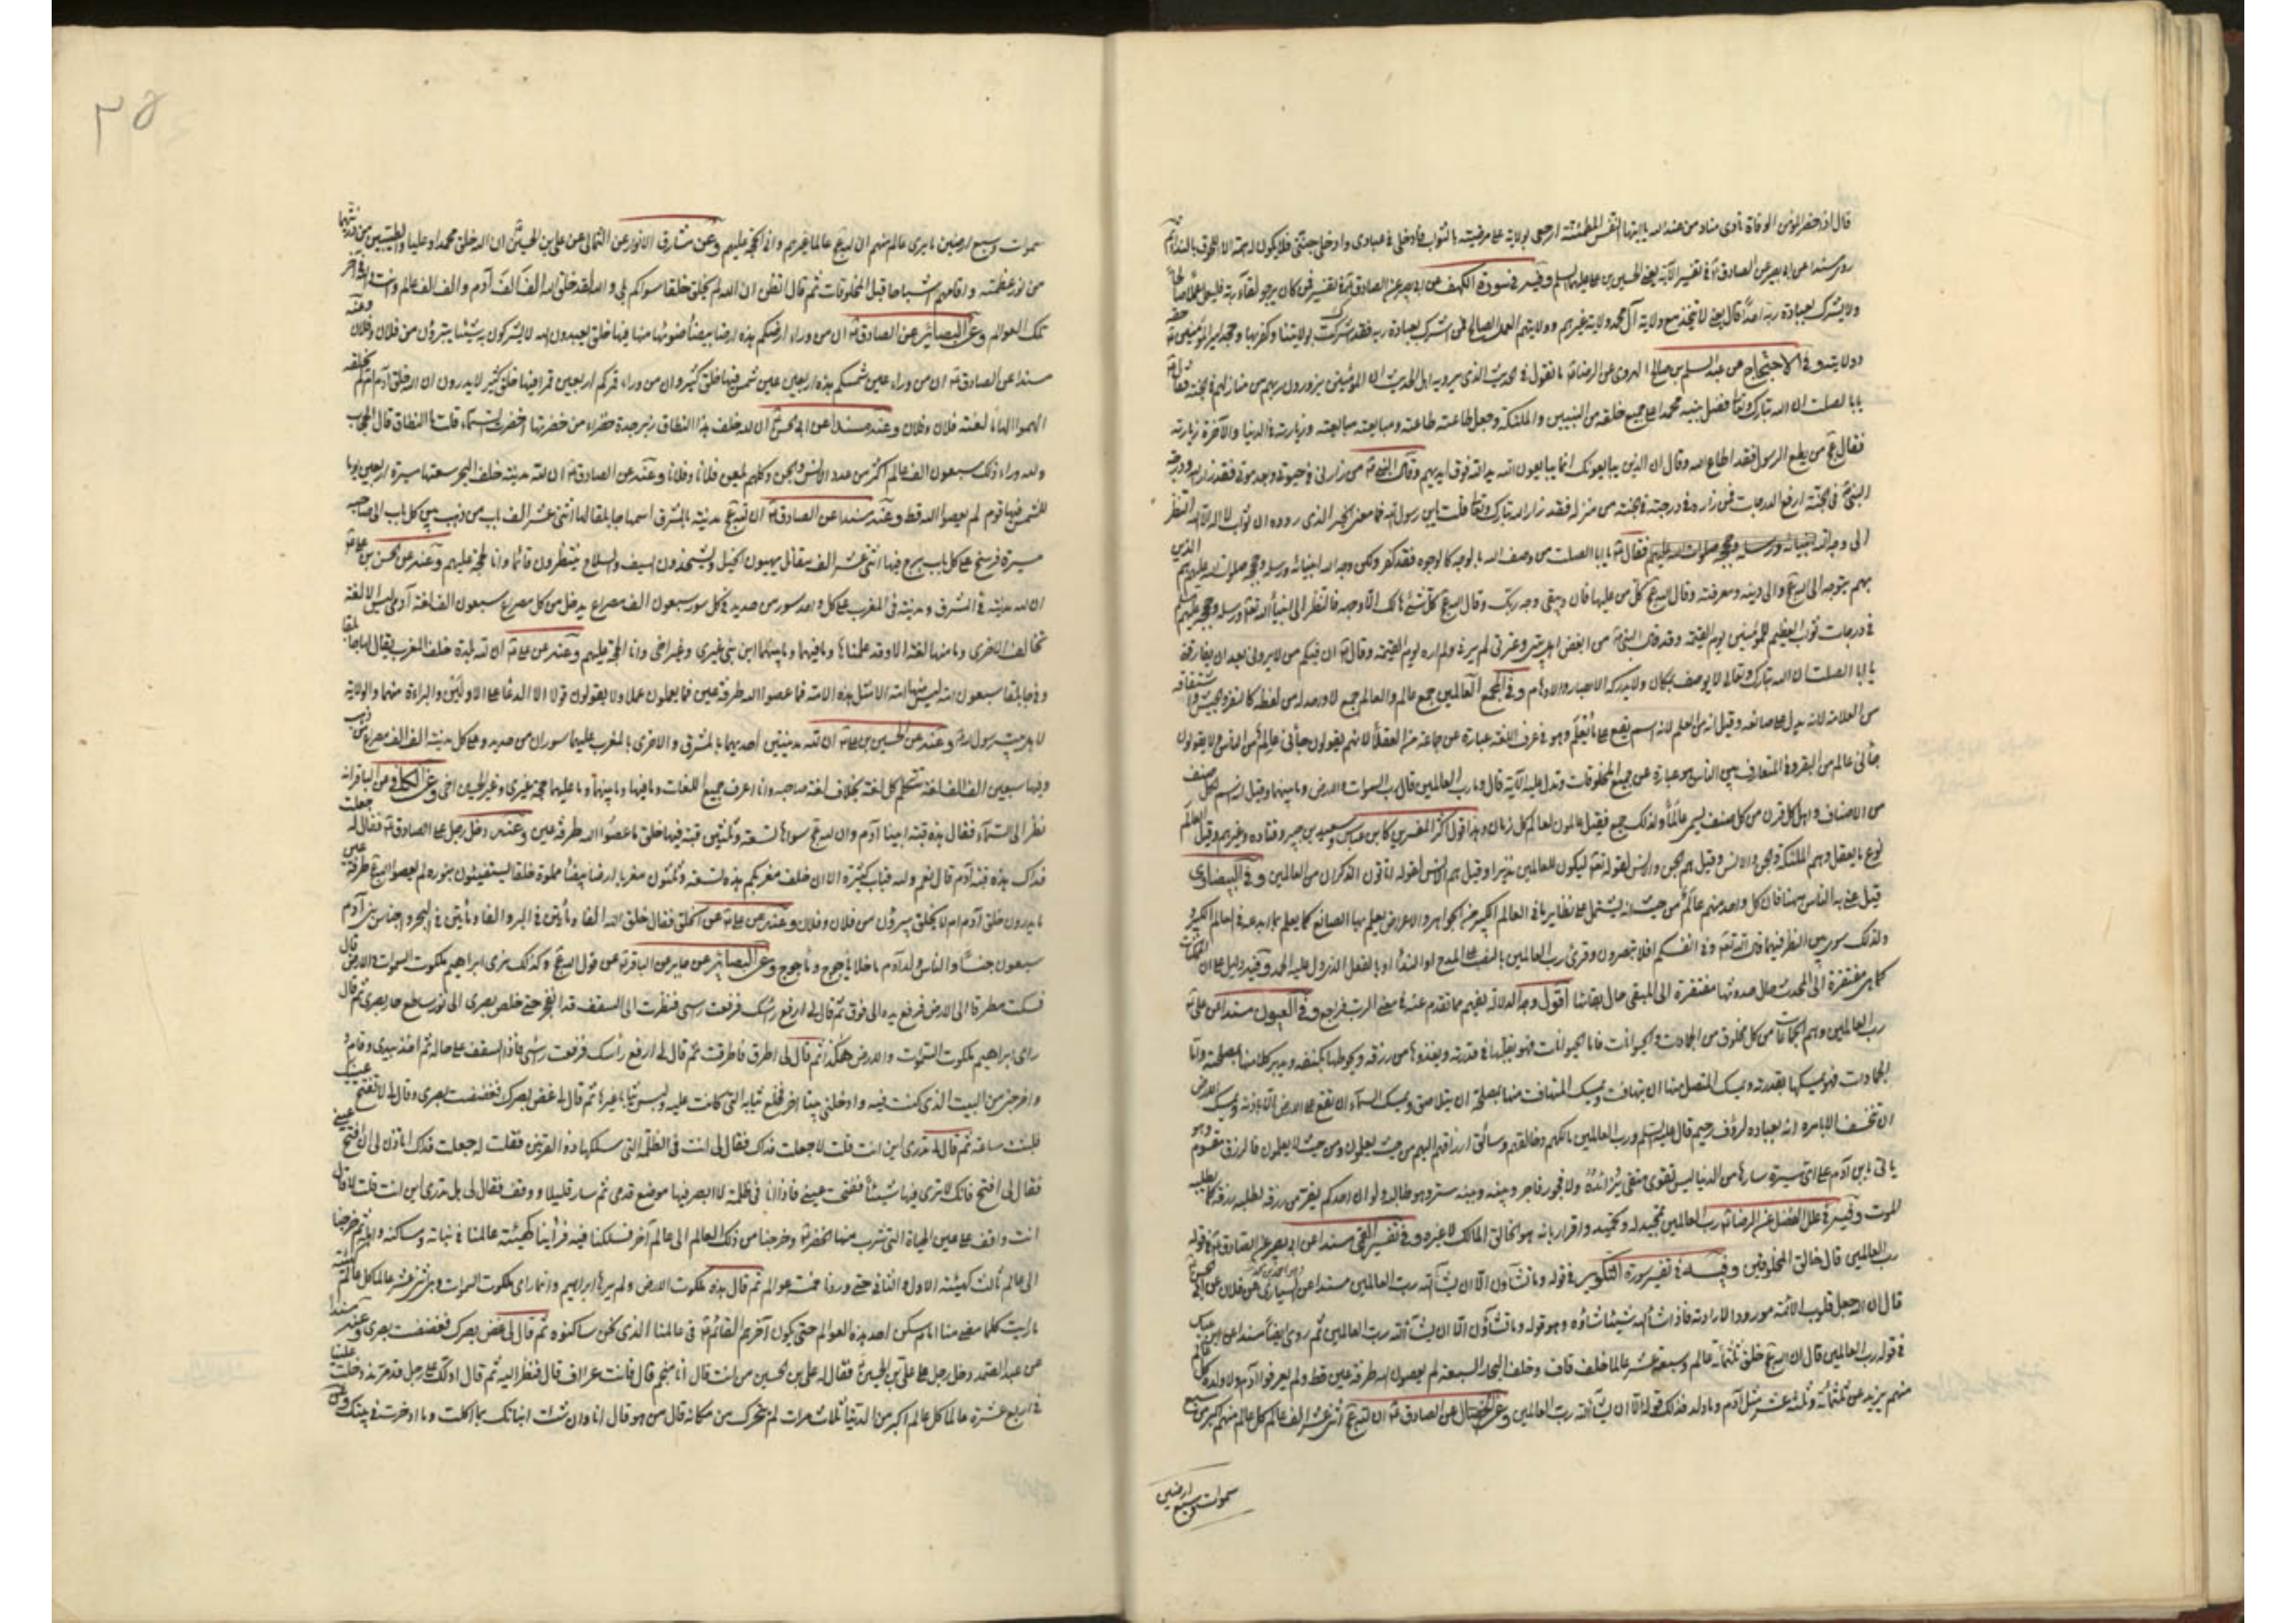 قال اذا حضر المؤمن الوفاة نادى مناد من عند الله يا ايتها النفس المطمئنة ارجعى بولاية على مرضية بالثواب فادخلى فى عبادى وادخلى جنتى فلا يكون له همة الا اللحوق بالنداء
روى مسندا عن ابى بصير عن الصادق فى تفسير الآية يعنى الحسين بن على عليهما السلم وفيه فى سورة الكهف عن ابى بصير عن الصادق فى تفسير فمن كان يرجو لقاء ربه فليعمل عملا صالحا
ولا يشرك بعبادة ربه احدا قال يعنى لا يتخذ مع ولاية آل محمد ولاية غيرهم وولايتهم العمل الصالح فمن اشرك بعبادة ربه فقد اشرك بولايتنا وكفر بها وجحد امير المؤمنين حقه
وولايته وفى الاحتجاج عن عبد السلم بن صالح الهروى عن الرضا ما تقول فى الحديث الذى يرويه اهل الحديث ان المؤمنين يزورون ربهم من منازلهم فى الجنة فقال
يا ابا الصلت ان الله تبارك وتعالى فضل نبيه محمدا على جميع خلقه من النبيين والملئكة وجعل طاعته طاعته ومبايعته مبايعته وزيارته فى الدنيا والآخرة زيارته
فقال من يطع الرسول فقد اطاع الله وقال ان الذين يبايعونك انما يبايعون الله يد الله فوق ايديهم وقال النبى من زارنى فى حيوتى وبعد موتى فقد زار الله ودرجة
النبى فى الجنة ارفع الدرجات فمن زاره فى درجته فى الجنة من منزله فقد زار الله تبارك وتعالى قلت يابن رسول الله فما معنى الخبر الذى رووه ان ثواب لا اله الا الله النظر
الى وجه الله فقال يا ابا الصلت من وصف الله بالوجه كالوجوه فقد كفر ولكن وجه الله انبيائه ورسله وحججه صلوات الله عليهم الذين
بهم يتوجه الى الله والى دينه ومعرفته وقال كل من عليها فان ويبقى وجه ربك وقال كل شئ هالك الا وجهه فالنظر الى انبياء الله ورسله وحججه عليهم
فى درجات ثواب العظيم للمؤمنين يوم القيمة وقد قال النبى من ابغض اهل بيتى وعترتى لم يرنى ولم اره يوم القيمة وقال ان فيكم من لا يرانى بعد ان يفارقنى
يا ابا الصلت ان الله تبارك وتعالى لا يوصف بمكان ولا يدركه الابصار والاوهام وفى المجمع العالمين جمع عالم والعالم جمع لا واحد له من لفظه كالنفر والجيش واشتقاقه
من العلامة لانه يدل على صانعه وقيل انه من العلم لانه اسم يقع على ما يعلم وهو فى عرف اللغة عبارة عن جماعة من العقلاء لانهم يقولون جائنى عالم من الناس ولا يقولون
جائنى عالم من البقر وفى المتعارف بين الناس هو عبارة عن جميع المخلوقات وتدل عليه الآية قال وما رب العالمين قال رب السموات والارض وما بينهما وقيل انه اسم لكل صنف
من الاصناف واهل كل قرن من كل صنف يسمى عالما ولذلك جمع فقيل عالمون لعالم كل زمان وهذا قول اكثر المفسرين كابن عباس وسعيد بن جبير وقتاده وغيرهم وقيل العالم
نوع ما يعقل وهم الملئكة والجن والانس وقيل هم الجن والانس لقوله تعالى ليكون للعالمين نذيرا وقيل هم الانس لقوله اتاتون الذكران من العالمين وفى البيضاوى
قيل عنى به الناس ههنا فان كل واحد منهم عالم من حيث انه يشتمل على نظاير ما فى العالم الكبير من الجواهر والاعراض يعلم بها الصانع كما يعلم بما ابدعه فى العالم الكبير
ولذلك سوى بين النظر فيهما قال الله تعالى وفى انفسكم افلا تبصرون وقرئ رب العالمين بالنصب على المدح او النداء او بالفعل الذى دل عليه الحمد وفيه دليل على ان الممكنات
كما هى مفتقرة الى المحدث حال حدوثها مفتقرة الى المبقى حال بقائها اقول وجه الدلالة يفهم مما تقدم عنه فى معنى الرب فراجع وفى العيون مسندا عن على
رب العالمين وهم الجماعات من كل مخلوق من الجمادات والحيوانات فاما الحيوانات فهو يقلبها فى قدرته ويغذوها من رزقه ويحوطها بكنفه ويدبر كلا منها بمصلحته واما
الجمادات فهو يمسكها بقدرته ويمسك المتصل منها ان يتهافت ويمسك المتهافت منها بمصلحته ان يتلاصق ويمسك السماء ان تقع على الارض الا باذنه ويمسك الارض
ان تنخسف الا بامره انه بعباده لرؤف رحيم قال عليه السلم ورب العالمين مالكهم وخالقهم وسائق ارزاقهم اليهم من حيث يعلمون ومن حيث لا يعلمون فالرزق مقسوم وهو
ياتى ابن آدم على اى سيرة سارها من الدنيا ليس تقوى متقى بزائده ولا فجور فاجر وبينه وبينه ستر وهو طالبه ولو ان احدكم يفر من رزقه لطلبه رزقه كما يطلبه
الموت وفيه فى علل الفضل عن الرضا رب العالمين تمجيد له وتحميد واقرار بانه هو الخالق المالك لا غيره وفى تفسير القمى مسندا عن ابى بصير عن الصادق فى قوله
رب العالمين قال خالق المخلوقين وفيه فى تفسير سورة التكوير فى قوله وما تشاؤن الا ان يشاء الله رب العالمين مسندا عن السيارى عن فلان عن ابى الحسن
قال ان الله جعل قلوب الائمة موردا لارادته فاذا شاء الله شيئا شاؤه وهو قوله وما تشاؤن الا ان يشاء الله رب العالمين ثم روى ايضا مسندا عن ابن عباس
فى قوله رب العالمين قال ان الله خلق ثلثمائة عالم وبضعة عشر عالما خلف قاف وخلف البحار السبعة لم يعصوا الله طرفة عين قط ولم يعرفوا آدم ولا ولده كل عالم
منهم يزيد عن ثلثمائة وثلثة عشر مثل آدم وما ولد فذلك قوله الا ان يشاء الله رب العالمين وعن الخصال عن الصادق ان لله اثنى عشر الف عالم كل عالم منهم اكبر من سبع
سموات وسبع ارضين
سموات وسبع ارضين ما يرى عالم منهم ان لله عالما غيرهم وانى الحجة عليهم وعن مشارق الانوار عن الثمالى عن على بن الحسين ان الله خلق محمدا وعليا والطيبين من ذريتهما
من نور عظمته واقامهم اشباحا قبل المخلوقات ثم قال اتظن ان الله لم يخلق خلقا سواكم بلى والله لقد خلق الله الف الف آدم والف الف عالم وانت والله فى آخر
تلك العوالم وعن البصائر عن الصادق ان من وراء ارضكم هذه ارضا بيضاء ضوئها منها فيها خلق يعبدون الله لا يشركون به شيئا يتبرؤن من فلان وفلان وعنه
مسندا عن الصادق ان من وراء عين شمسكم هذه اربعين عين شمس فيها خلق كثير وان من وراء قمركم اربعين قمرا فيها خلق كثير لا يدرون ان الله خلق آدم ام لم يخلقه
الهموا الهاما لعنة فلان وفلان وعنه مسندا عن ابى الحسن ان لله خلف هذا النطاق زبرجدة خضراء من خضرتها اخضرت السماء قلت ما النطاق قال الحجاب
ولله وراء ذلك سبعون الف عالم اكثر من عدد الانس والجن وكلهم يلعن فلانا وفلانا وعنه عن الصادق ان لله مدينة خلف البحر سعتها مسيرة اربعين يوما
للشمس فيها قوم لم يعصوا الله قط وعنه مسندا عن الصادق ان لله مدينة بالمشرق اسمها جابلقا لها اثنى عشر الف باب من ذهب بين كل باب الى صاحبه
مسيرة فرسخ على كل باب برج فيها اثنى عشر الف مقاتل يهيئون الخيل ويشحذون السيف والسلاح ينتظرون قائمنا وانا الحجة عليهم وعنه عن الحسن بن على
ان لله مدينة فى المشرق ومدينة فى المغرب على كل واحد سور من حديد فى كل سور سبعون الف مصراع يدخل من كل مصراع سبعون الف لغة آدمى ليس الا لغة
تخالف الاخرى وما منها لغة الا وقد علمناها وما فيهما وما بينهما ابن نبى غيرى وغير اخى وانا الحجة عليهم وعنه عن على ان لله بلدة خلف المغرب يقال لها جابلقا
وفى جابلقا سبعون الف امة ليس منها امة الا مثل هذه الامة فما عصوا الله طرفة عين فما يعملون عملا ولا يقولون قولا الا الدعاء على الاولين والبراءة منهما والولاية
لاهل بيت رسول الله وعنه عن الحسين بن على ان لله مدينتين احديهما بالمشرق والاخرى بالمغرب عليهما سوران من حديد وعلى كل مدينة الف الف مصراع من ذهب
وفيها سبعين الف الف لغة تتكلم كل لغة بخلاف لغة صاحبه وانا اعرف جميع اللغات وما فيها وما بينهما وما عليهما حجة غيرى وغير الحسين اخى وعن الكافى عن الباقر انه
نظر الى السماء فقال هذه قبة ابينا آدم وان لله سواها تسعة وثلثين قبة فيها خلق ما عصوا الله طرفة عين وعنه دخل رجل على الصادق فقال له جعلت
فداك هذه قبة آدم قال نعم ولله قباب كثيرة الا ان خلف مغربكم هذه تسعة وثلثون مغربا ارضا بيضاء مملوة خلقا يستضيئون بنوره لم يعصوا الله طرفة عين
ما يدرون خلق آدم ام لم يخلق يبرؤن من فلان وفلان وعنه عن على عن الخلق فقال خلق الله الفا ومأتين فى البر والفا ومأتين فى البحر واجناس بنى آدم
سبعون جنسا والناس ولد آدم ما خلا ياجوج وماجوج وعن البصائر عن جابر عن الباقر عن قول الله وكذلك نرى ابراهيم ملكوت السموات والارض قال
فكنت مطرقا الى الارض فرفع يده الى فوق ثم قال لى ارفع رأسك فرفعت رأسى فنظرت الى السقف قد انفجر حتى خلص بصرى الى نور ساطع حار بصرى ثم قال
راى ابراهيم ملكوت السموات والارض هكذا ثم قال لى اطرق فاطرقت ثم قال لى ارفع رأسك فرفعت رأسى فاذا السقف على حاله ثم اخذ بيدى وقام
واخرجنى من البيت الذى كنت فيه وادخلنى بيتا اخر فخلع ثيابه التى كانت عليه ولبس ثيابا غيرها ثم قال لى غض بصرك فغضضت بصرى وقال لى لا تفتح عينيك
فلبثت ساعة ثم قال لى اتدرى اين انت قلت لا جعلت فداك فقال لى انت فى الظلمة التى سلكها ذو القرنين فقلت له جعلت فداك اتاذن لى ان افتح عينى
فقال لى افتح فانك لا ترى فيها شيئا ففتحت عينى فاذا انا فى ظلمة لا ابصر فيها موضع قدمى ثم سار قليلا ووقف فقال لى هل تدرى اين انت قلت لا قال
انت واقف على عين الحياة التى شرب منها الخضر وخرجنا من ذلك العالم الى عالم آخر فسلكنا فيه فرأينا كهيئة عالمنا فى نباته وساكنه واهله ثم خرجنا
الى عالم ثالث كهيئة الاول والثانى حتى وردنا خمسة عوالم ثم قال هذه ملكوت الارض ولم يرها ابراهيم وانما راى ملكوت السموات وهى اثنى عشر عالما كل عالم كهيئة
ما رايت كلما مضى منا امام سكن احد هذه العوالم حتى يكون آخرهم القائم فى عالمنا الذى نحن ساكنوه ثم قال لى غض بصرك فغضضت بصرى وعنه مسندا
عن عبد الصمد دخل رجل على على بن الحسين فقال له على بن الحسين من انت قال انا منجم قال فانت عراف قال فنظر اليه ثم قال ادلك على رجل قد مر منذ دخلت علينا
فى اربع عشرة عالما كل عالم اكبر من الدنيا ثلاث مرات لم يتحرك من مكانه قال من هو قال انا وان شئت انبأتك بما اكلت وما ادخرت فى بيتك
٢٥